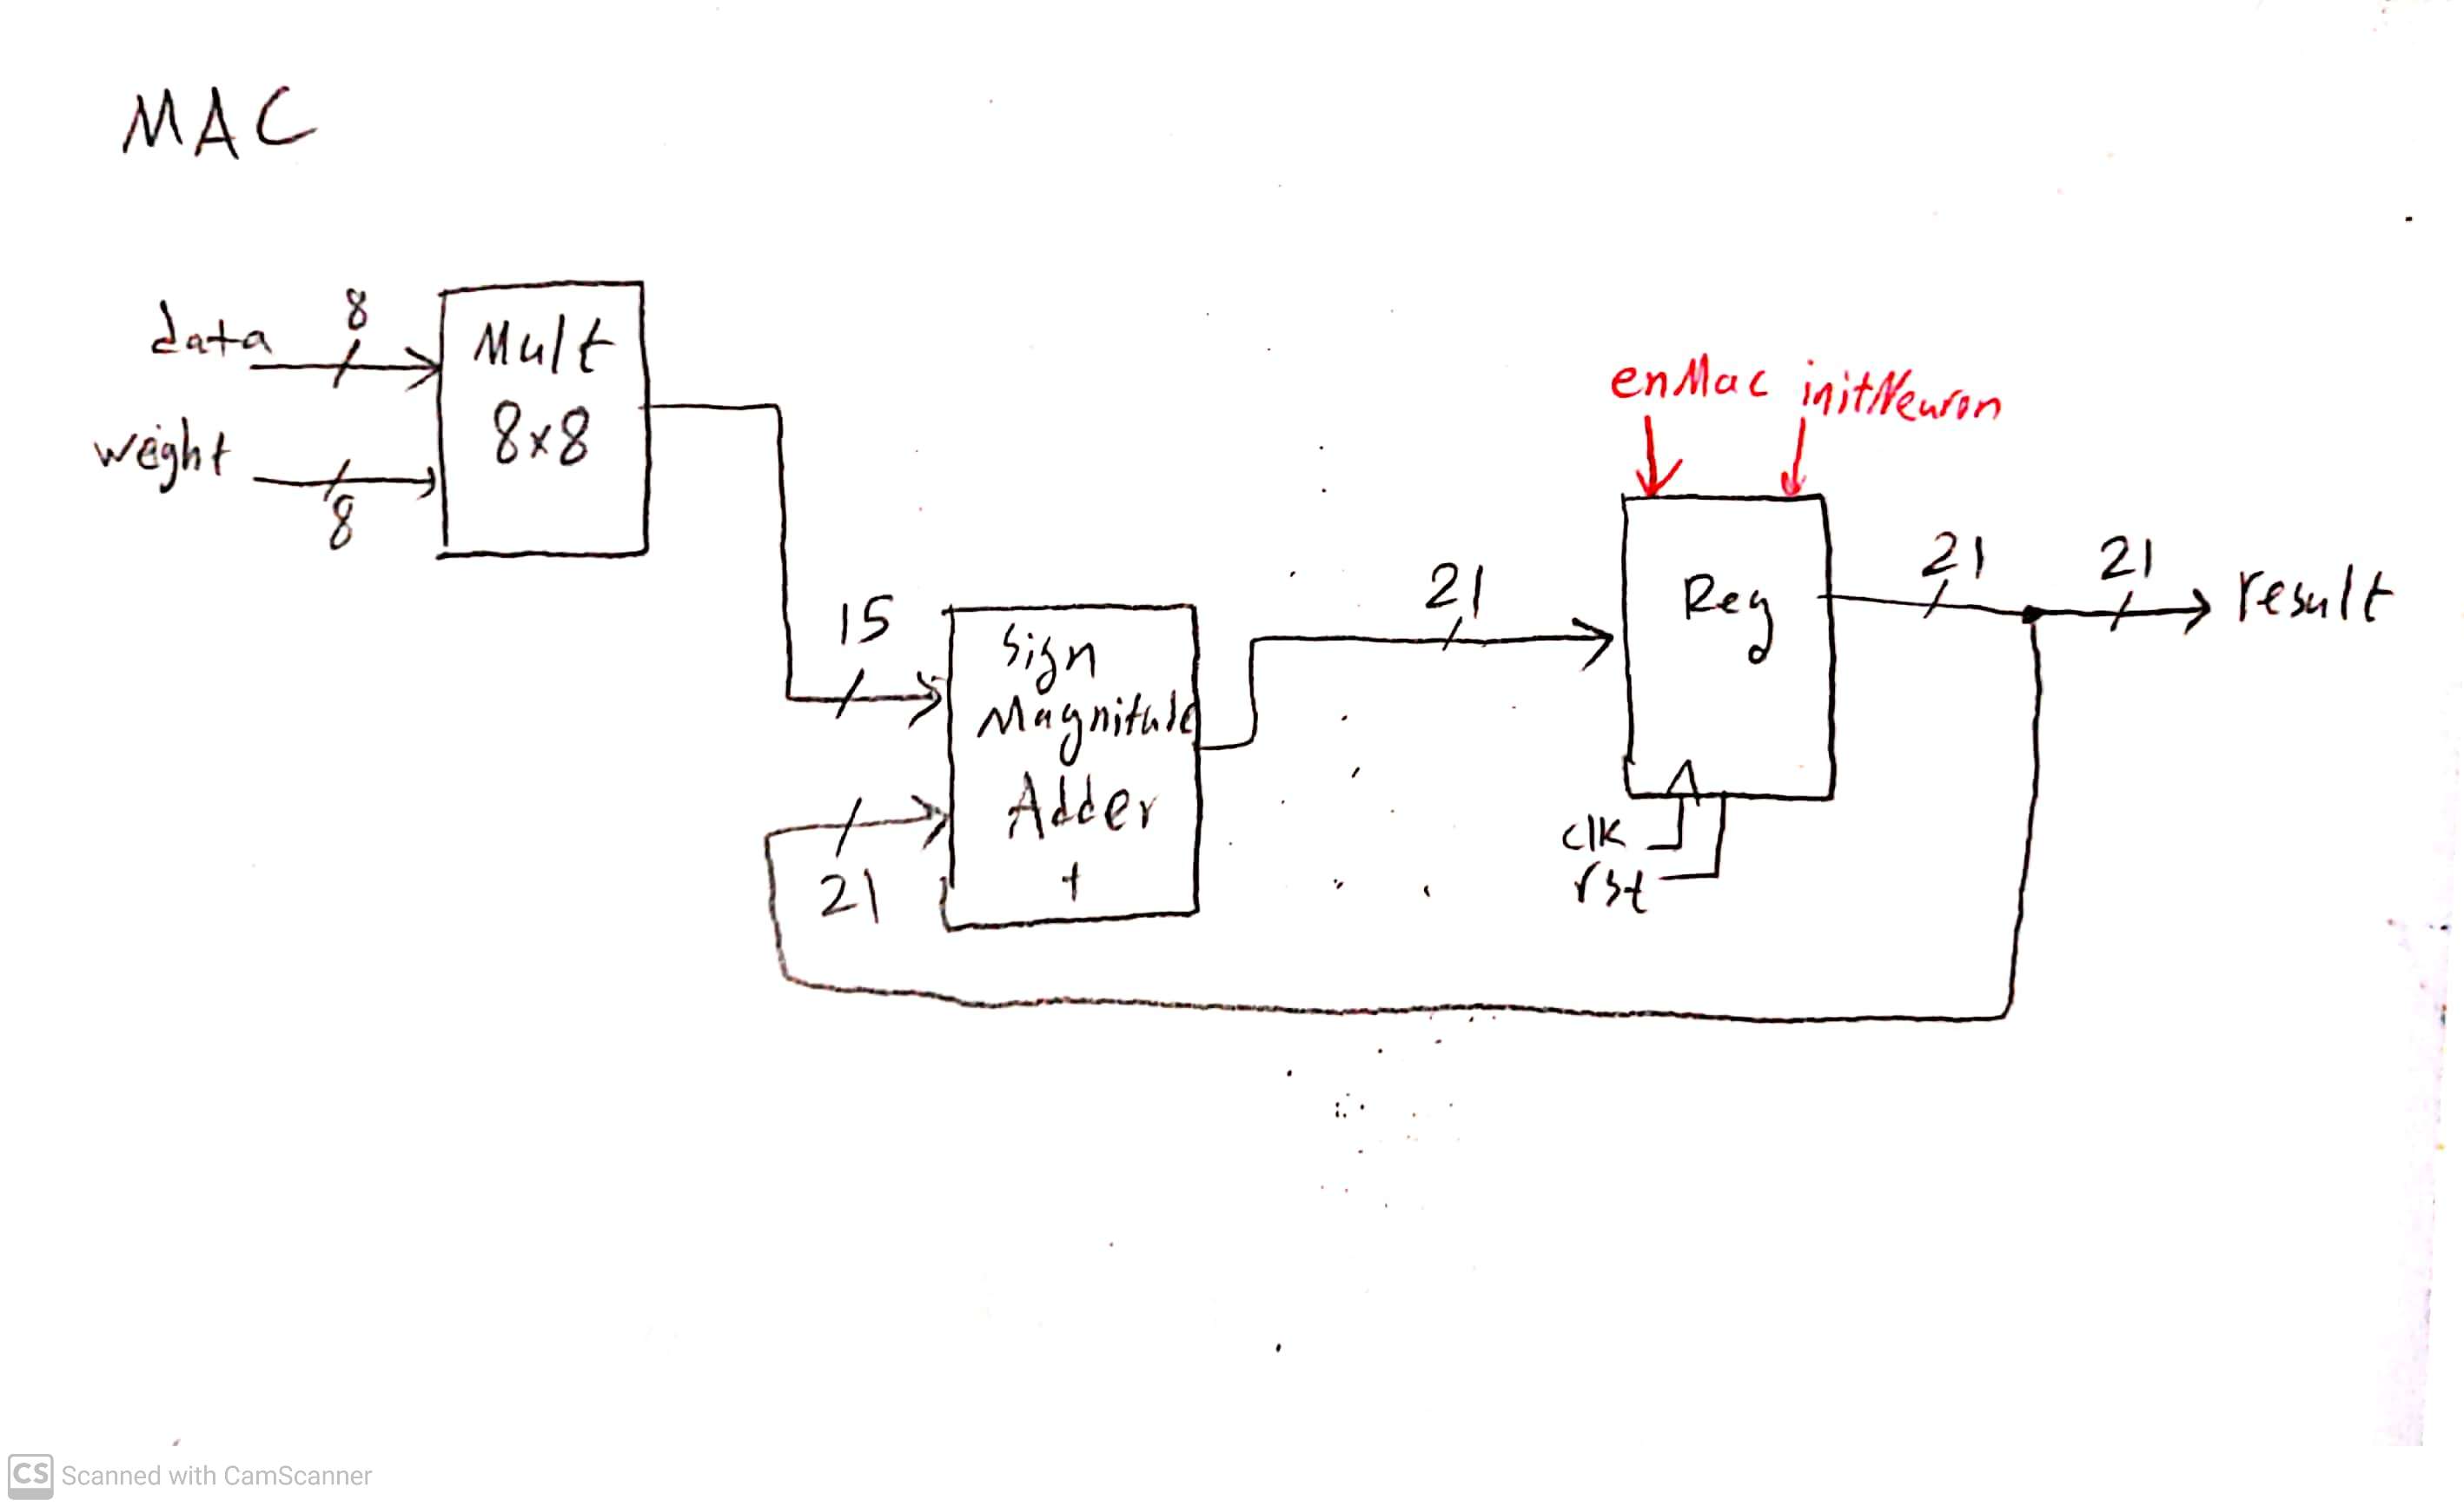 MAC
data
8
weight
8
Mult
8x8
15
21
Sign
Magnitude
Adder
+
21
enMac initNeuron
Reg
clk
rst
21
21
result
CS Scanned with CamScanner